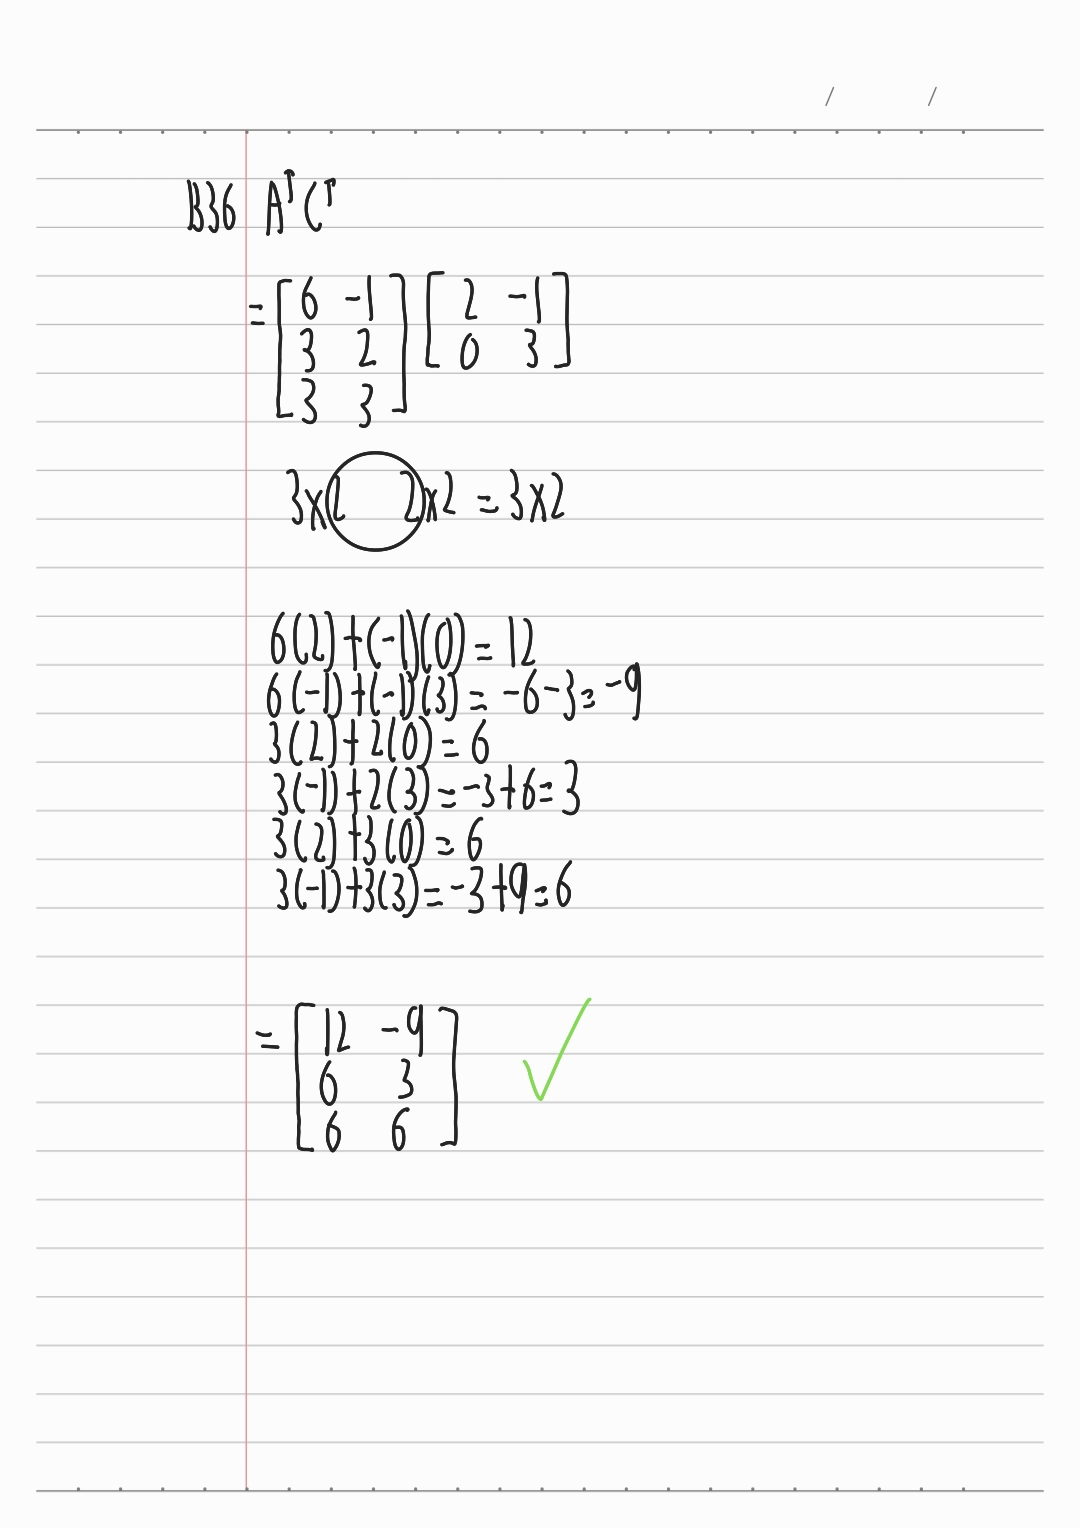 / /
B36 AᵀCᵀ
= [6 -1] [2 -1]
[3 2] [0 3]
[3 3]
3x2 2x2 = 3x2
6(2)+(-1)(0) = 12
6(-1)+(-1)(3) = -6-3=-9
3(2)+2(0) = 6
3(-1)+2(3) = -3+6=3
3(2)+3(0) = 6
3(-1)+3(3) = -3+9=6
= [12 -9]
[6 3]
[6 6]